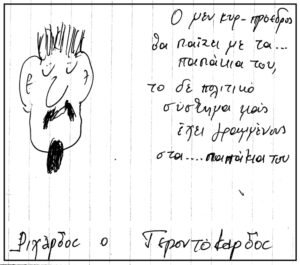 Ο μεν κυρ-πρόεδρος
θα παίζει με τα...
παπάκια του,
το δε πολιτικό
σύστημα μας
έχει γραμμένους
στα....παπάκια του
Ριχάρδος ο Γεροντόκαρδος